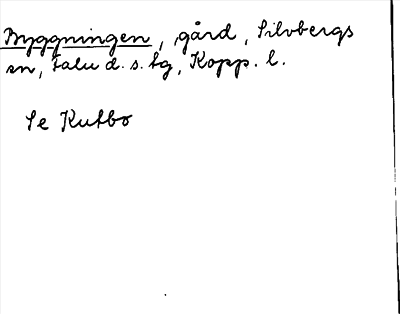 Byggningen, gård, Silvbergs
sn, Falu d. s. tg, Kopp. l.
Se Kutbo